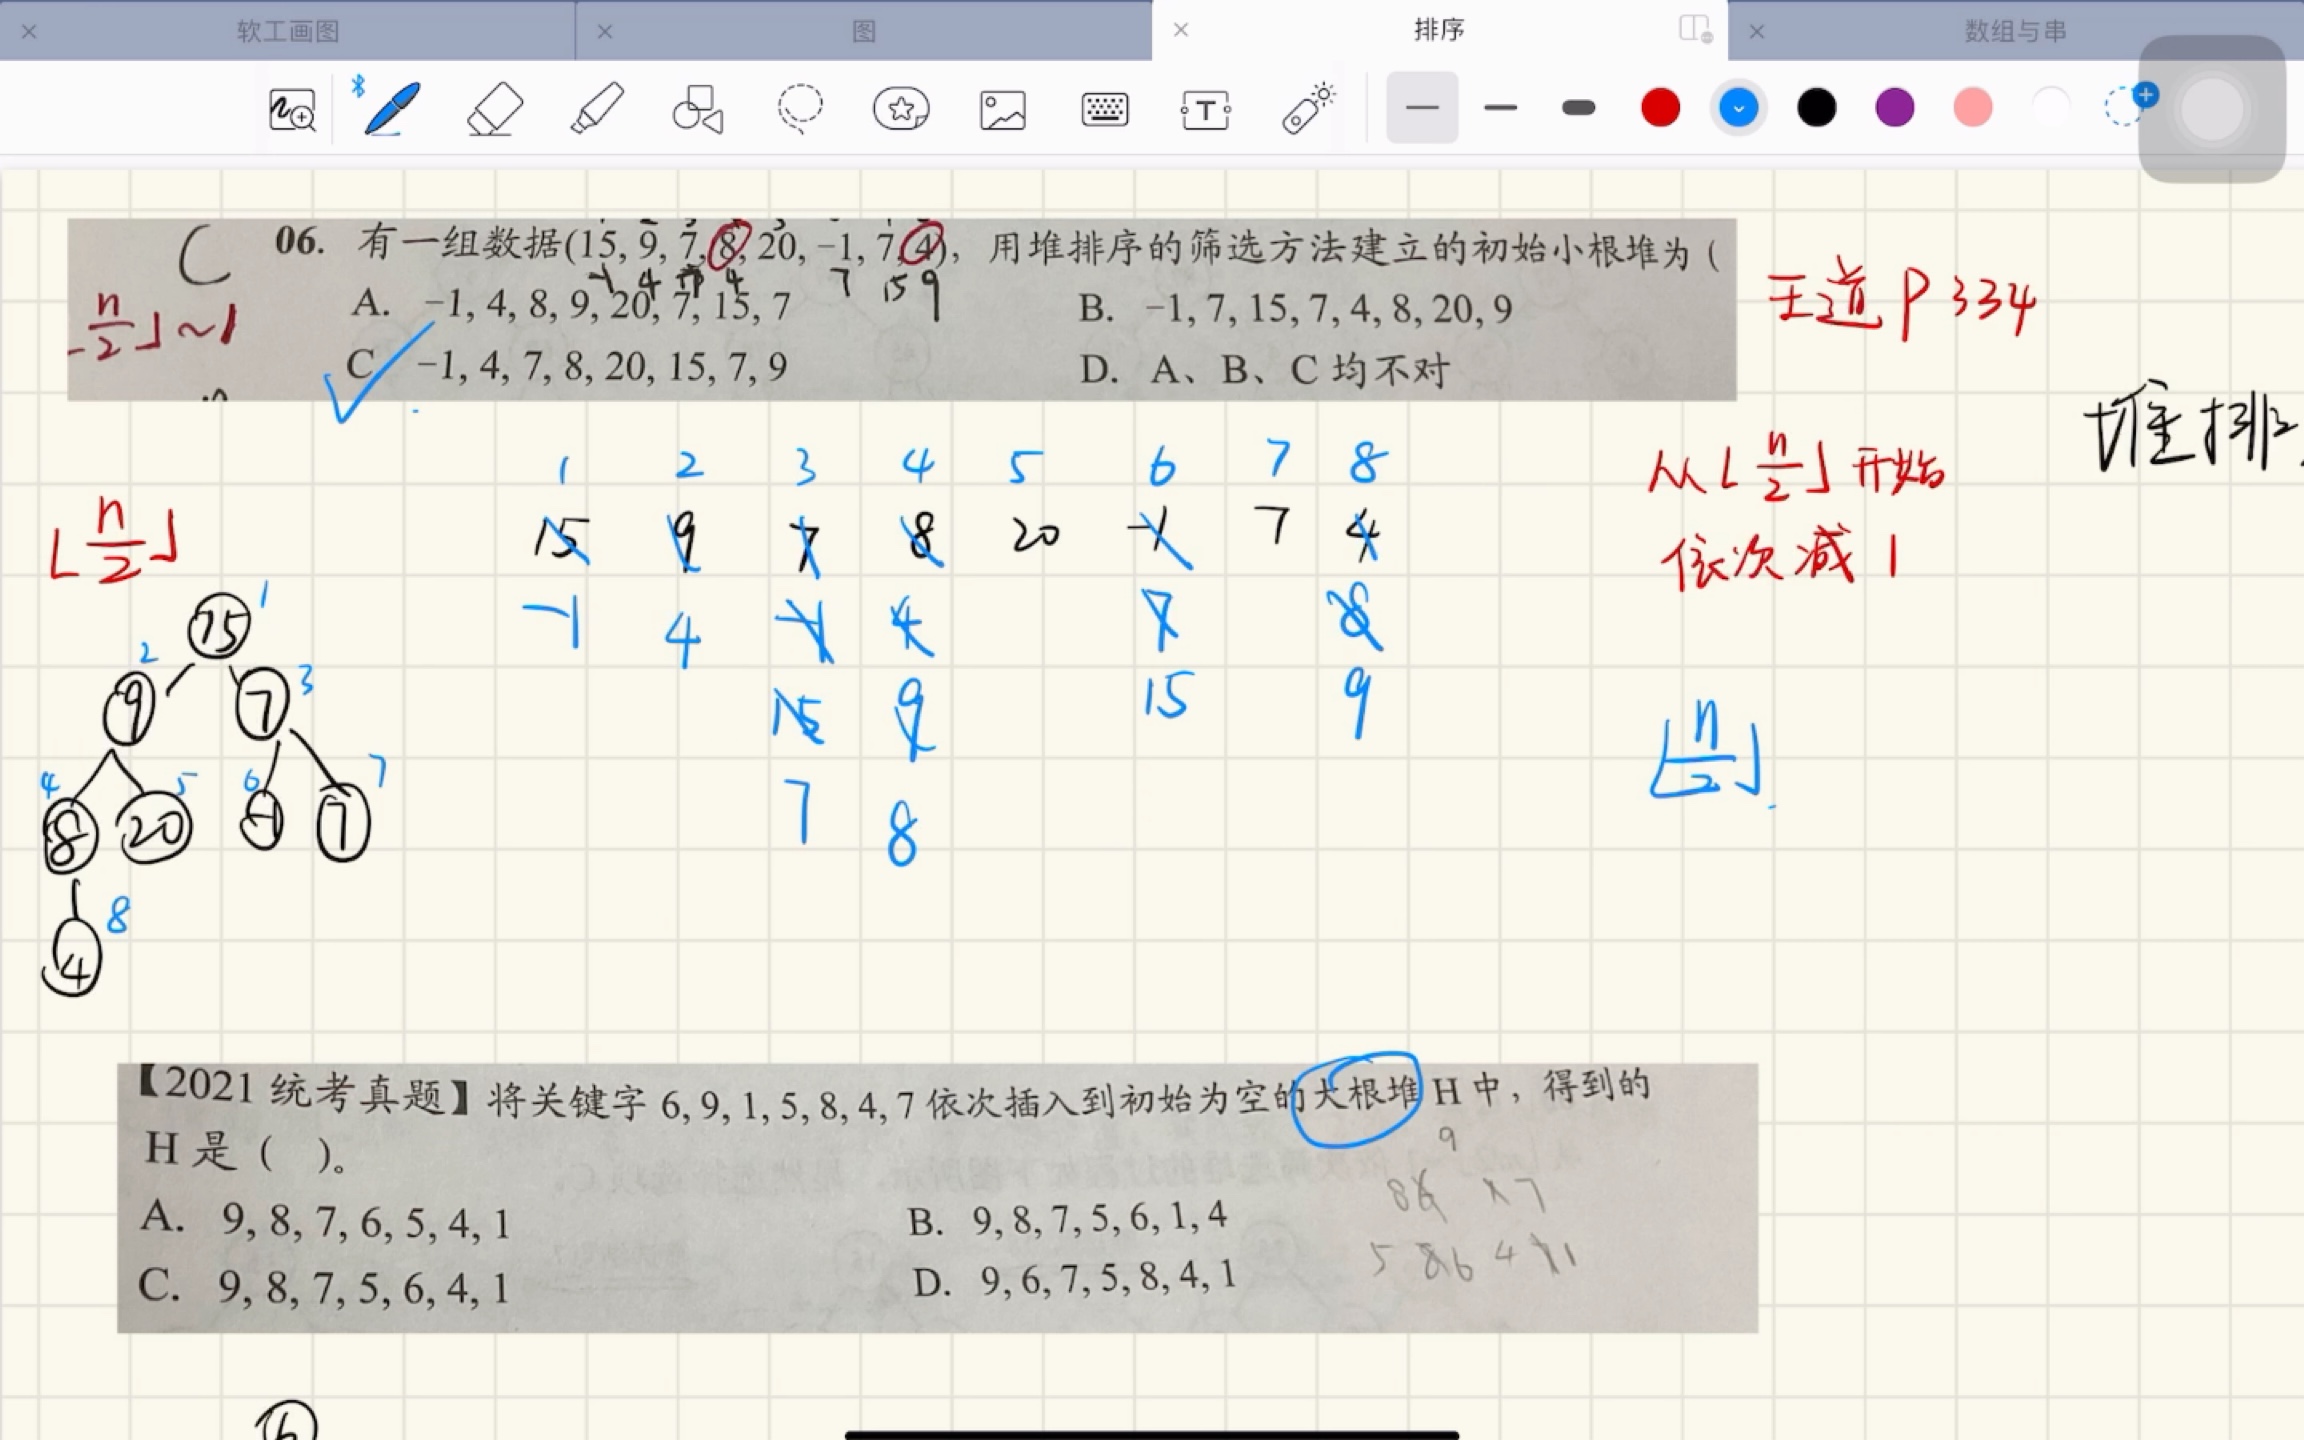 软工画图
图
排序
数组与串
C 06. 有一组数据(15, 9, 7, 8, 20, −1, 7, 4)，用堆排序的筛选方法建立的初始小根堆为（
-1 4 7 4 7 15 9
n/2⌋~1
A. −1, 4, 8, 9, 20, 7, 15, 7
B. −1, 7, 15, 7, 4, 8, 20, 9
C −1, 4, 7, 8, 20, 15, 7, 9
D. A、B、C 均不对
王道 P 334
堆排
从⌊n/2⌋开始
依次减 1
1 2 3 4 5 6 7 8
15 9 7 8 20 -1 7 4
-1 4 -1 4 7 8
15 9 15 9
7 8
⌊n/2⌋
⌊n/2⌋
15 1
2 9 7 3
4 8 20 5 6 -1 7 7
4 8
【2021 统考真题】将关键字 6, 9, 1, 5, 8, 4, 7 依次插入到初始为空的大根堆 H 中，得到的
H 是（ ）。
A. 9, 8, 7, 6, 5, 4, 1
B. 9, 8, 7, 5, 6, 1, 4
C. 9, 8, 7, 5, 6, 4, 1
D. 9, 6, 7, 5, 8, 4, 1
9
8 6 7
5 8 6 4 1
6